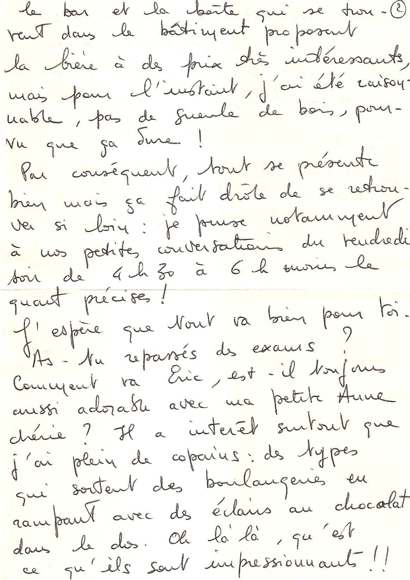 le bar et la boîte qui se trou- ②
vent dans le bâtiment proposent
la bière à des prix très intéressants,
mais pour l'instant, j'ai été raison-
nable, pas de gueule de bois, pour-
vu que ça dure !
Par conséquent, tout se présente
bien mais ça fait drôle de se retrou-
ver si loin : je pense notamment
à nos petites conversations du vendredi
soir de 4 h 30 à 6 h moins le
quart précises !
J'espère que tout va bien pour toi.
As-tu repassés des exams ?
Comment va Eric, est-il toujours
aussi adorable avec ma petite Anne
chérie ? Il a interêt surtout que
j'ai plein de copains : des types
qui sortent des boulangeries en
rampant avec des éclairs au chocolat
dans le dos. Oh là là, qu'est
ce qu'ils sont impressionnants !!